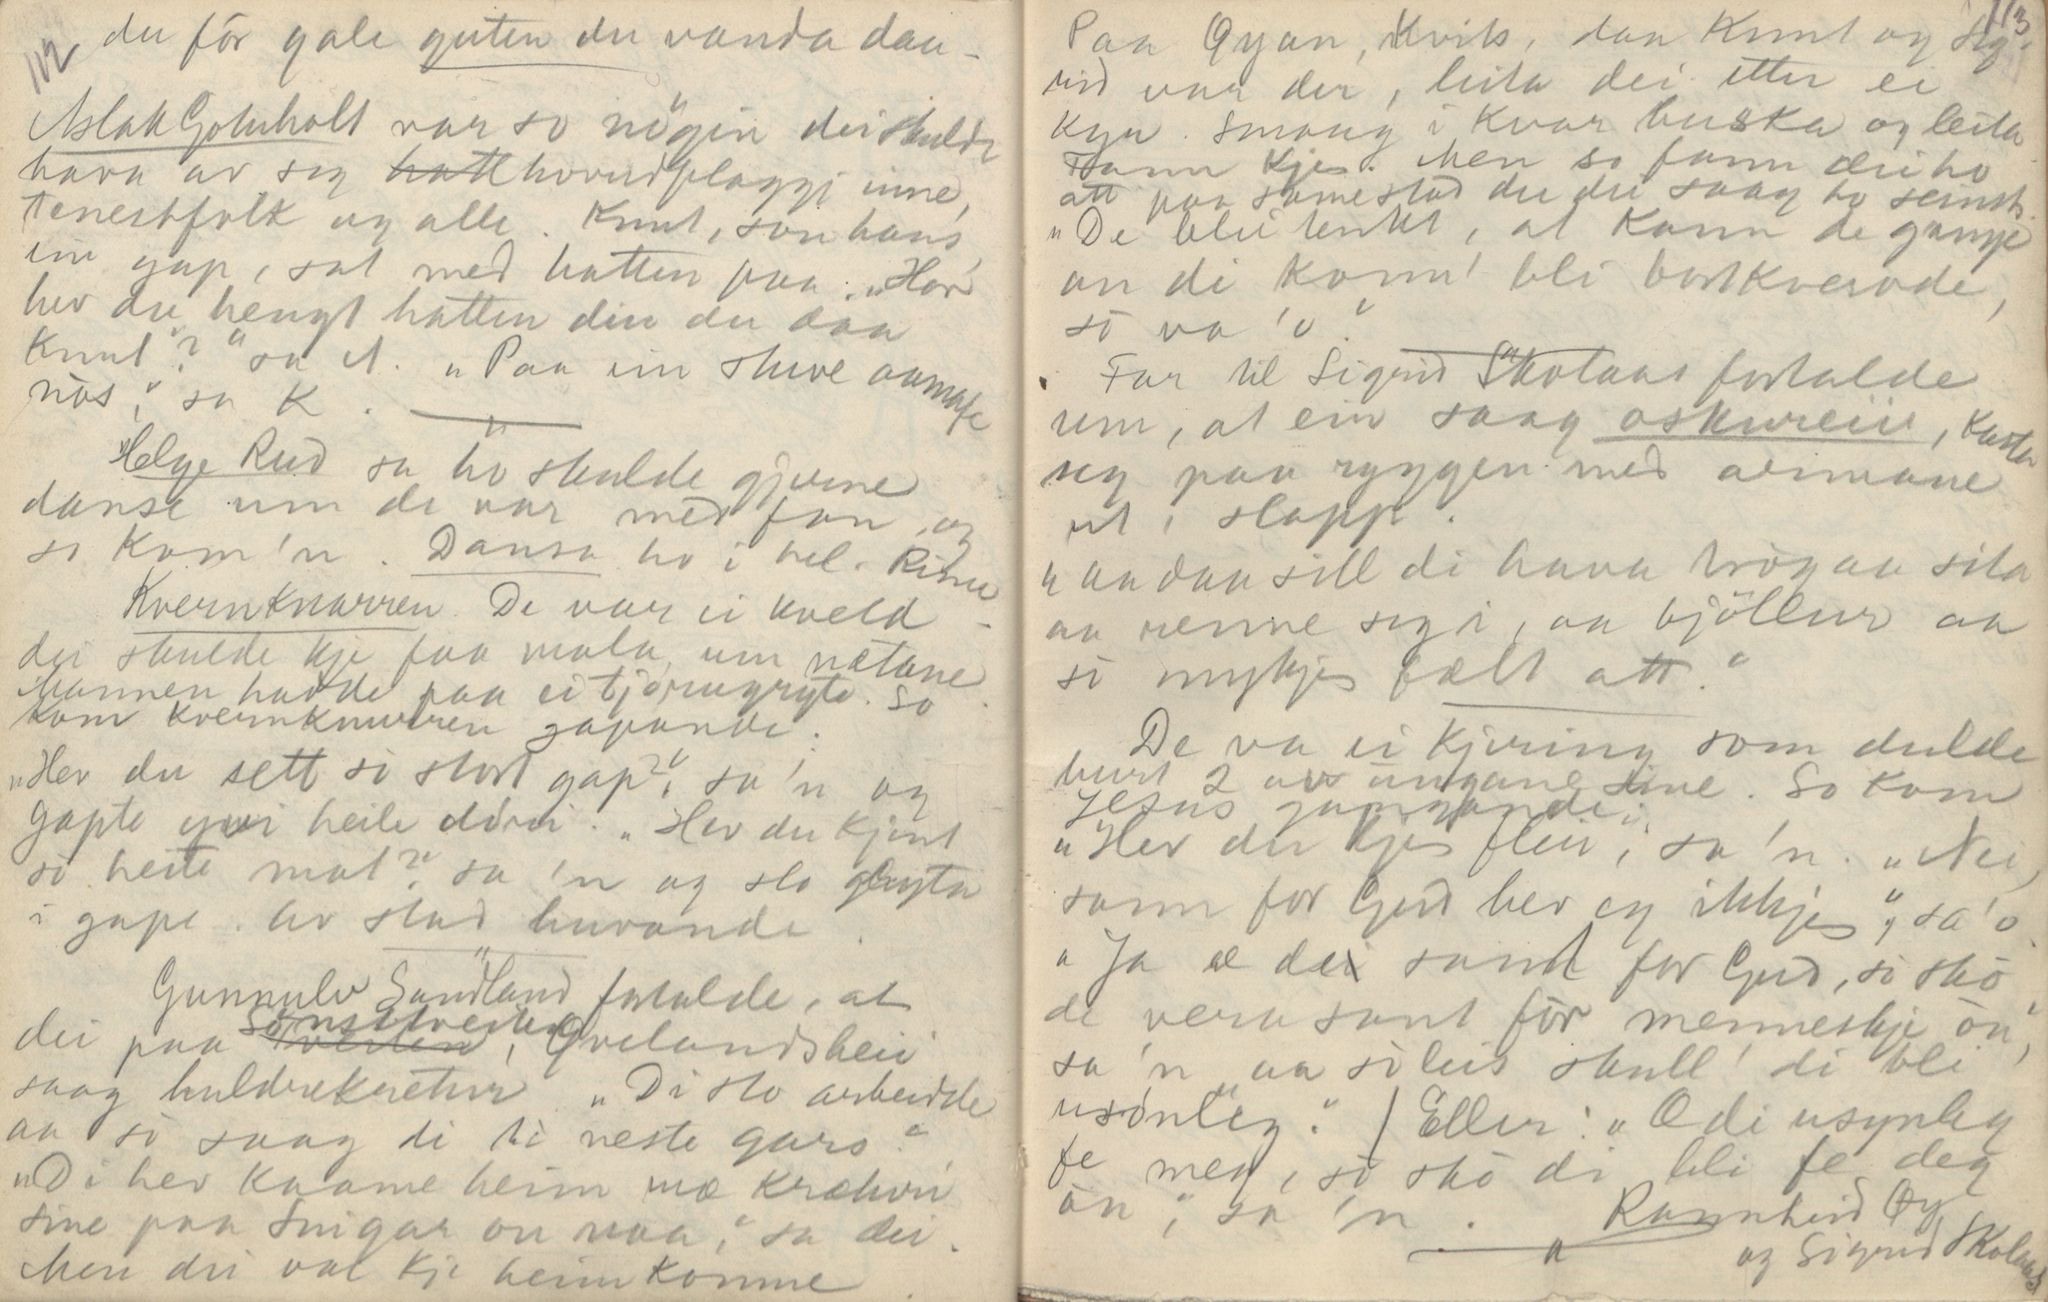 112
du för gale guten du vanda dau-
Aslak Gotuholt var so nögin dei skulde
hava av seg hatt hovudplaggji inne,
Tenestfolk og alle. Knut, son hans,
ein gap, sat med hatten paa. "Hor
hev du hengt hatten din du daa
Knut"? sa A. "Paa ein stuve
nös," sa K.
Helge Rud sa ho skulde gjerne
danse um de var med fan, og
so kom 'n. Dansa ho i hel.
Kvernknarren. De var ei kveld
dei skulde kje faa mala um nætane.
Mannen hadde paa ei tjörugryte. So
kom kvernknurren gapande.
"Hev du sett so stort gap?" sa 'n og
gapte yvi heile döri. "Hev du kjent
so heite mat?" sa 'n og slo gryta
i gape. Av stad huvande.
Gunnulv Sundland fortalde, at
dei paa Tveiten, Qvelandsheii
saag huldrekretur. "Di sto arbeidde
aa so saag di ti neste gars."
"Di hev kaame heim mæ krætori
sine paa Snigar on naa," sa dei.
Men dei var kje heimkomne.
113
Paa Öyan, Kvits, daa Knut og Sig-
rid var der, leita dei etter ei
kyr. Smaug i kvar buska og leita
Fann kje. Men so fann dei ho
att paa same stad du dei saag ho seinst.
"De blei tenkt, at kann de gange
an di konn' bli bortkverade,
so va 'o."
Far til Sigrid Skolaas fortalde
um, at ein saag oskureii, kasta
seg paa ryggen med armane
ut, slapp.
"aa daa sill di hava trög aa sita
aa renne seg i, aa bjöllur aa
so mykje fælt att."
De va ei kjering som dulde
burt 2 av ungane sine. So kom
Jesus gangande.
"Hev du kje fleir," sa 'n. "Nei,
sann for Gud hev eg ikkje," sa 'o.
"Ja æ dei sant for Gud, so skö
de vera sant för menneskje ön,"
sa 'n aa soleis skull' di bli
usönleg." / Eller: "Æ di usynleg
fe meg, so skö di bli fe deg
ön," sa 'n.
Ragnheid Öy
og Sigrid Skolaas